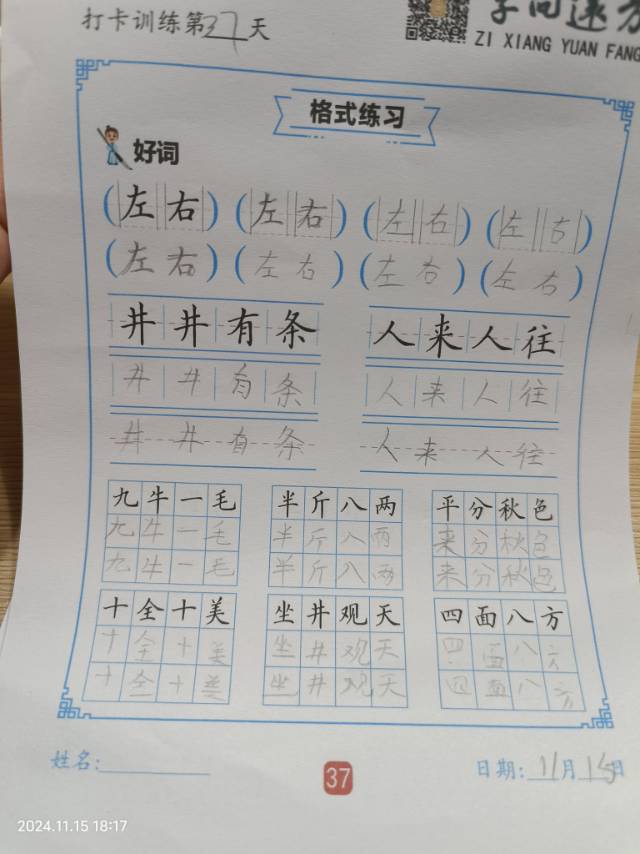 打卡训练第37天
字向速方
ZI XIANG YUAN FANG
格式练习
好词
(左右) (左右) (左右) (左右)
(左右) (左右) (左右) (左右)
井井有条 人来人往
井井有条 人来人往
井井有条 人来人往
九牛一毛 半斤八两 平分秋色
九牛一毛 半斤八两 来分秋色
九牛一毛 半斤八两 来分秋色
十全十美 坐井观天 四面八方
十全十美 坐井观天 四面八方
十全十美 坐井观天 四面八方
姓名: 37 日期:11月15日
2024.11.15 18:17